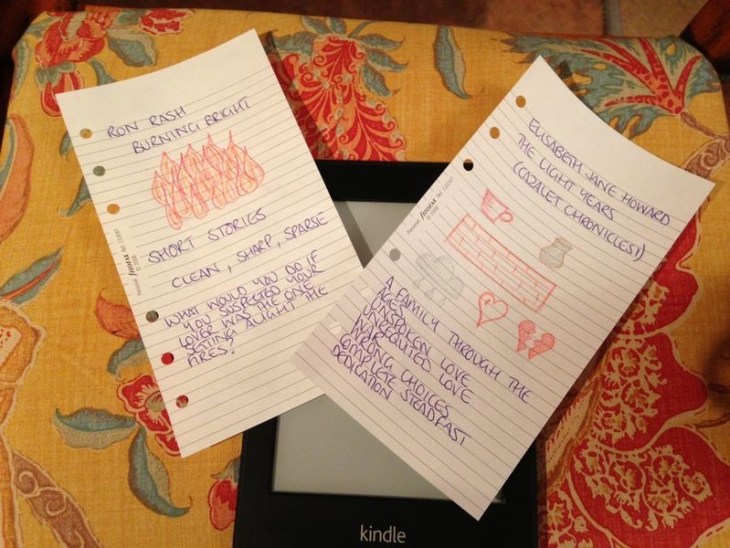 RON RASH
BURNING BRIGHT
SHORT STORIES
CLEAN, SHARP, SPARSE
WHAT WOULD YOU DO IF
YOU SUSPECTED YOUR
LOVER WAS THE ONE
SETTING ALIGHT THE
FIRES?
filofax
ELISABETH JANE HOWARD
THE LIGHT YEARS
(CAZALET CHRONICLES 1)
A FAMILY THROUGH THE
AGES
UNSPOKEN LOVE
UNREQUITED LOVE
WAR
WRONG CHOICES
COMPLETE STEADFAST
DEDICATION
filofax
kindle